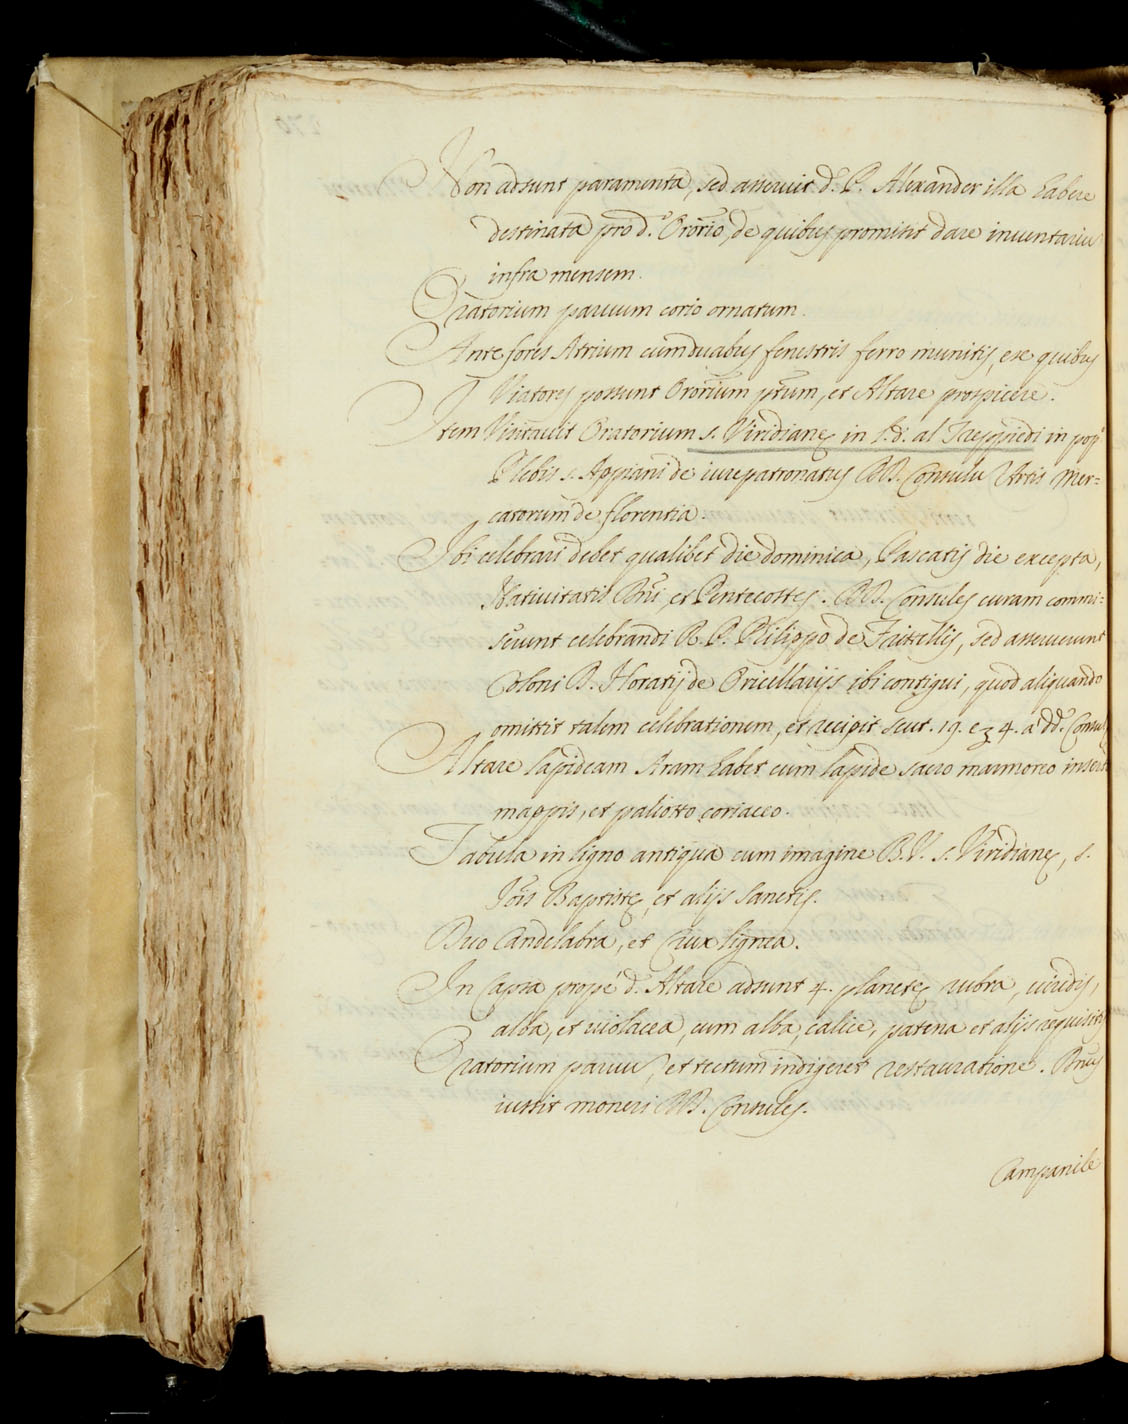 Non adsunt paramenta, sed asseruit d.ˢ P. Alexander illa habere
destinata pro d.º Orõrio, de quibus promisit dare inuentariũ
infra mensem.
Oratorium paruum corio ornatum.
Ante fores Atrium cum duabus fenestris ferro munitis, ex quibus
Viatores possunt Orõrium ptum, et Altare prospicere.
Item Visitauit Oratorium s. Viridianę in l.d. al Treppiedi in pop.º
Plebis s. Appiani de iurepatronatus DD. Consulũ Artis Mer=
catorum de florentia.
Ibi celebrari debet qualibet die dominica, Pascatis die excepta,
Natiuitatis Dñi, et Pentecostes. DD. Consules curam commi=
serunt celebrandi R. P. Philippo de Frittellis, sed asseruerunt
Coloni D. Horatij de Oricellarijs ibi contigui, quod aliquando
omittit talem celebrationem, et recipit scut. 19. e 4. a dd. Consul
Altare lapideam Aram habet cum lapide sacro marmoreo inserto
mappis, et paliotto coriaceo.
Tabula in ligno antiqua cum imagine B.V. s. Viridianę, s.
Iõis Baptistę, et alijs Sanctis.
Duo Candelabra, et Crux lignea.
In Capsa prope d. Altare adsunt 4. planetę rubra, uiridis,
alba, et uiolacea, cum alba, calice, patena et alijs requisitis
Oratorium paruũ, et tectum indigeret restauratione. Dñus
iussit moneri DD. Consules.
Campanile